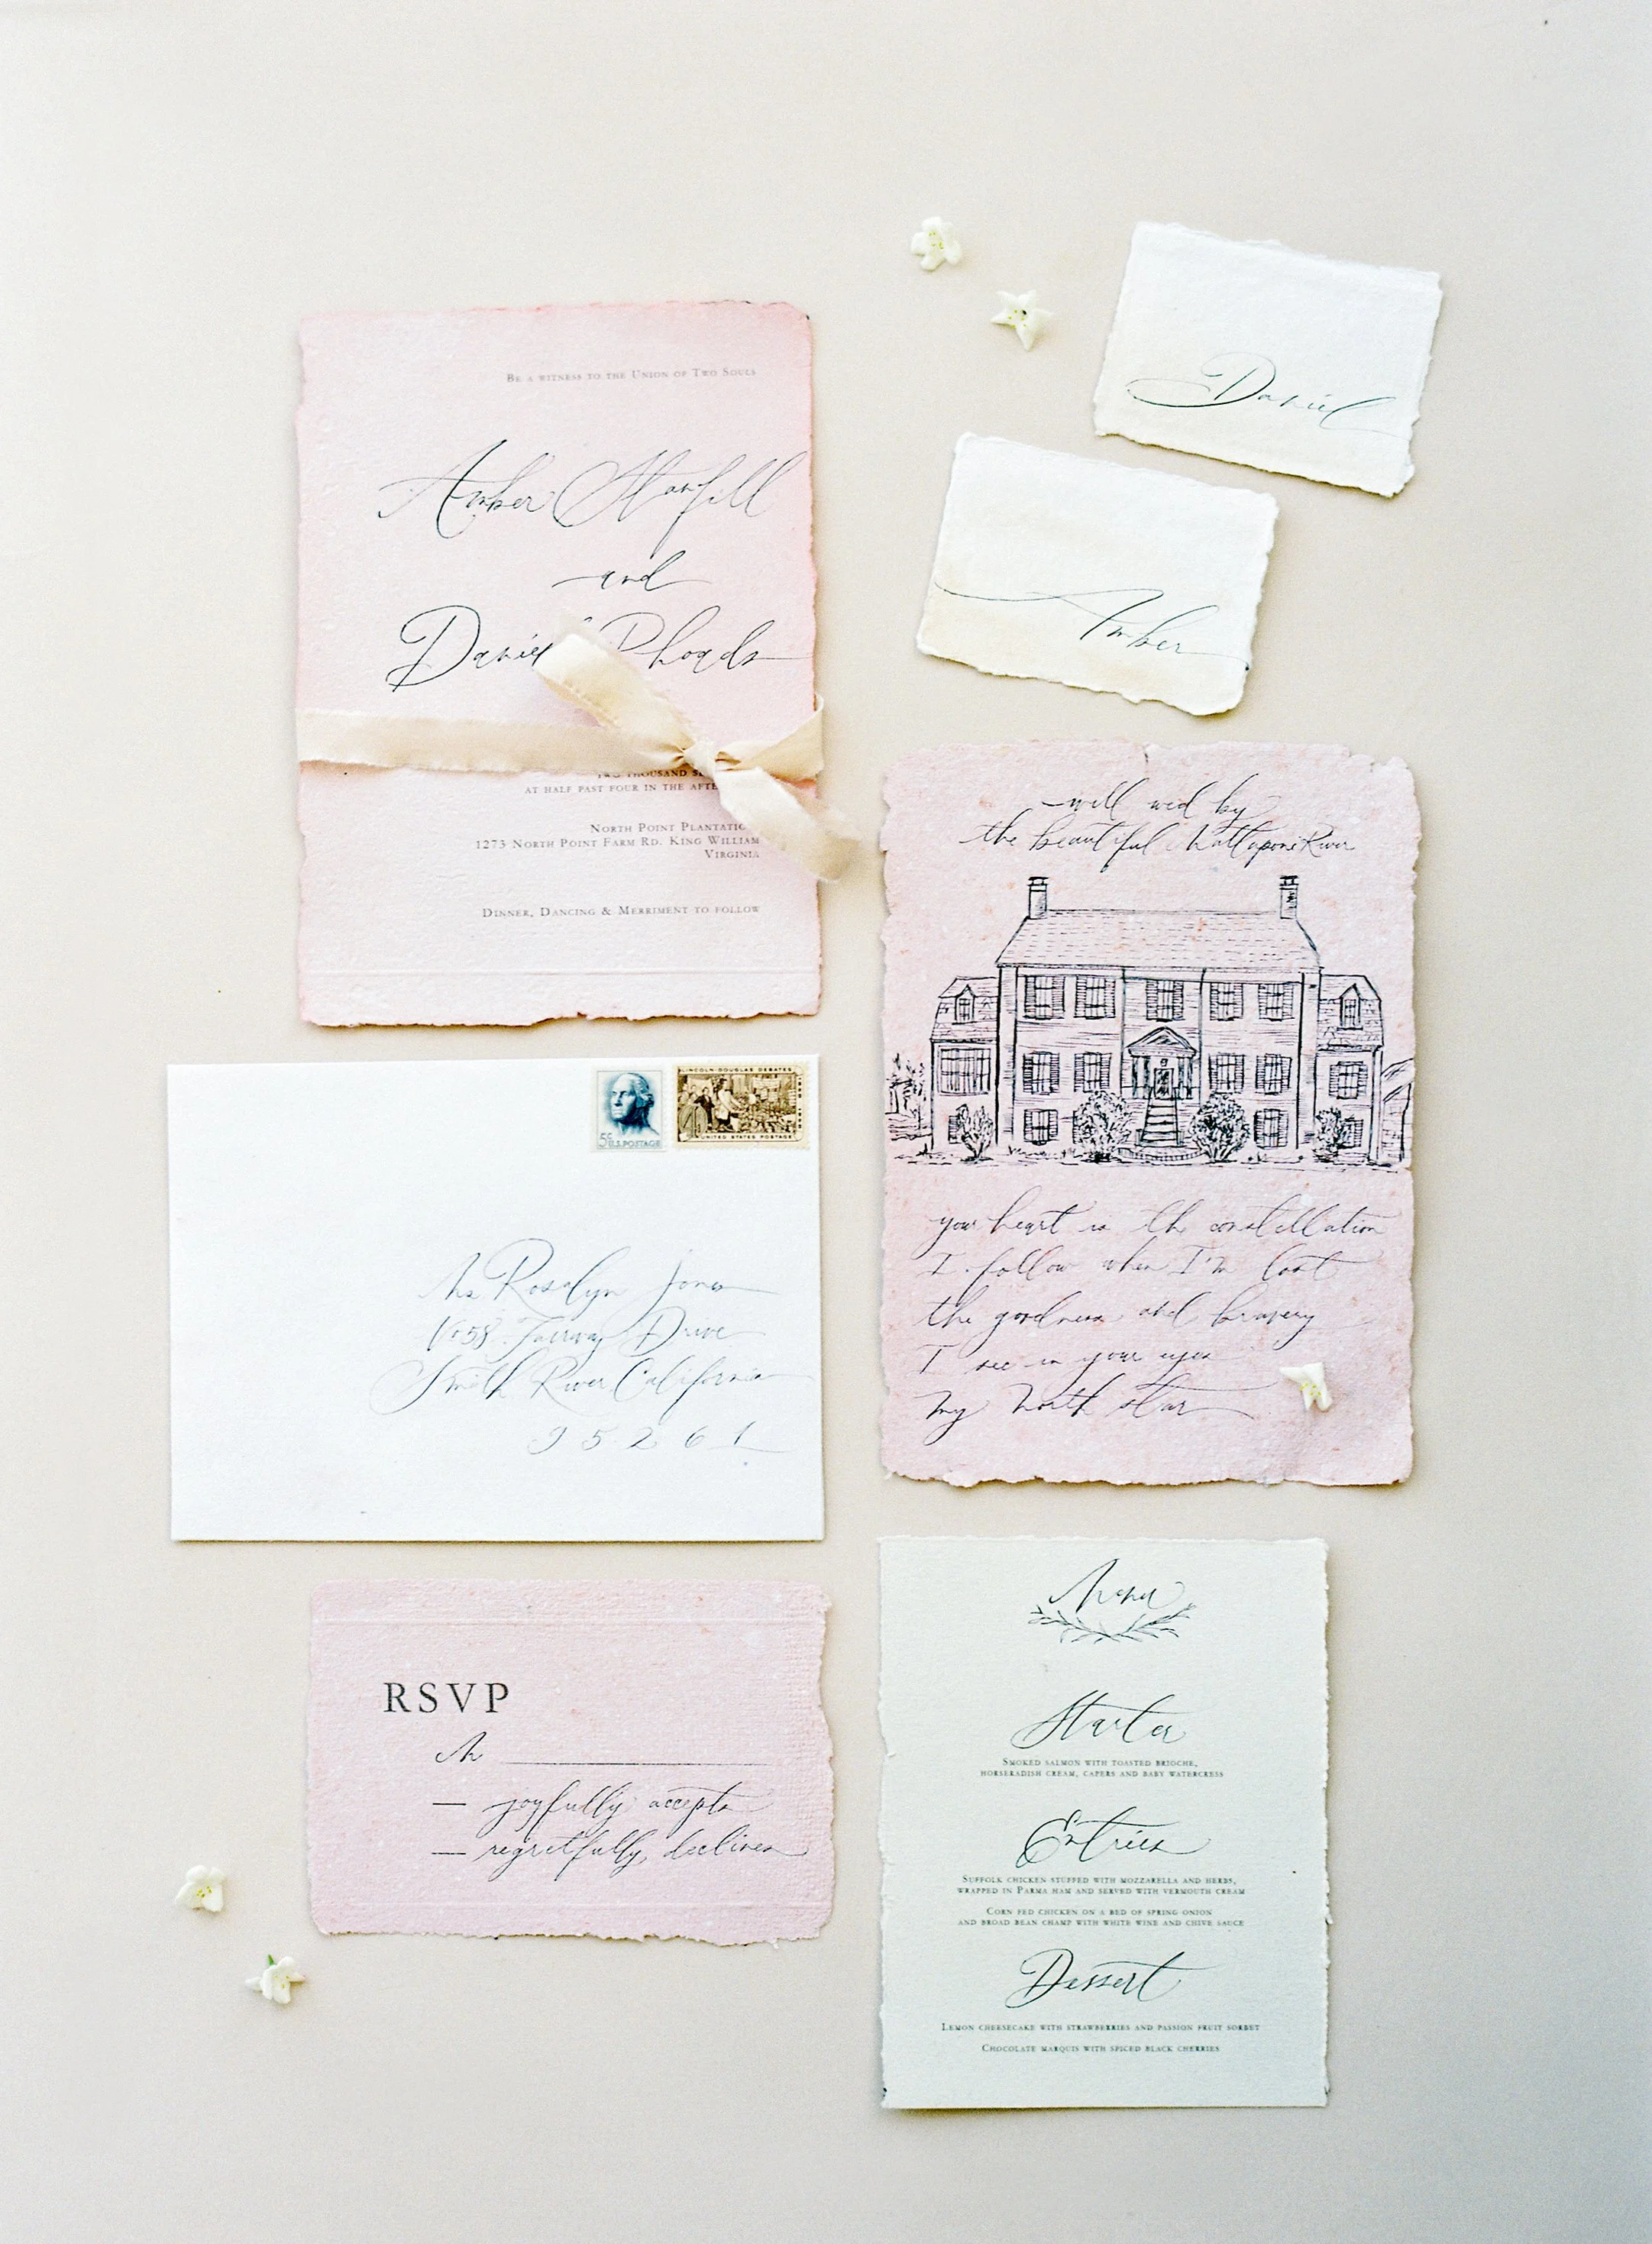 Be a witness to the Union of Two Souls
Amber Stanfill
and
Daniel Rhoads
two thousand
at half past four in the
North Point
1273 North Point Farm Rd. King William
Virginia
Dinner, Dancing & Merriment to follow
Daniel
Amber
will wed by
the beautiful Mattaponi River
your heart is the constellation
I follow when I'm lost
the goodness and bravery
I see in your eyes
my north star
5¢ U.S. POSTAGE
LINCOLN-DOUGLAS DEBATES
UNITED STATES POSTAGE
Ms Rosalyn Jones
Drive
Smith River California
95261
RSVP
M
joyfully accepts
regretfully declines
Menu
Starter
Smoked salmon with toasted brioche,
horseradish cream, capers and baby watercress
Entrées
Suffolk chicken stuffed with mozzarella and herbs,
wrapped in Parma ham and served with vermouth cream
Corn fed chicken on a bed of spring onion
and broad bean champ with white wine and chive sauce
Dessert
Lemon cheesecake with strawberries and passion fruit sorbet
Chocolate marquis with spiced black cherries